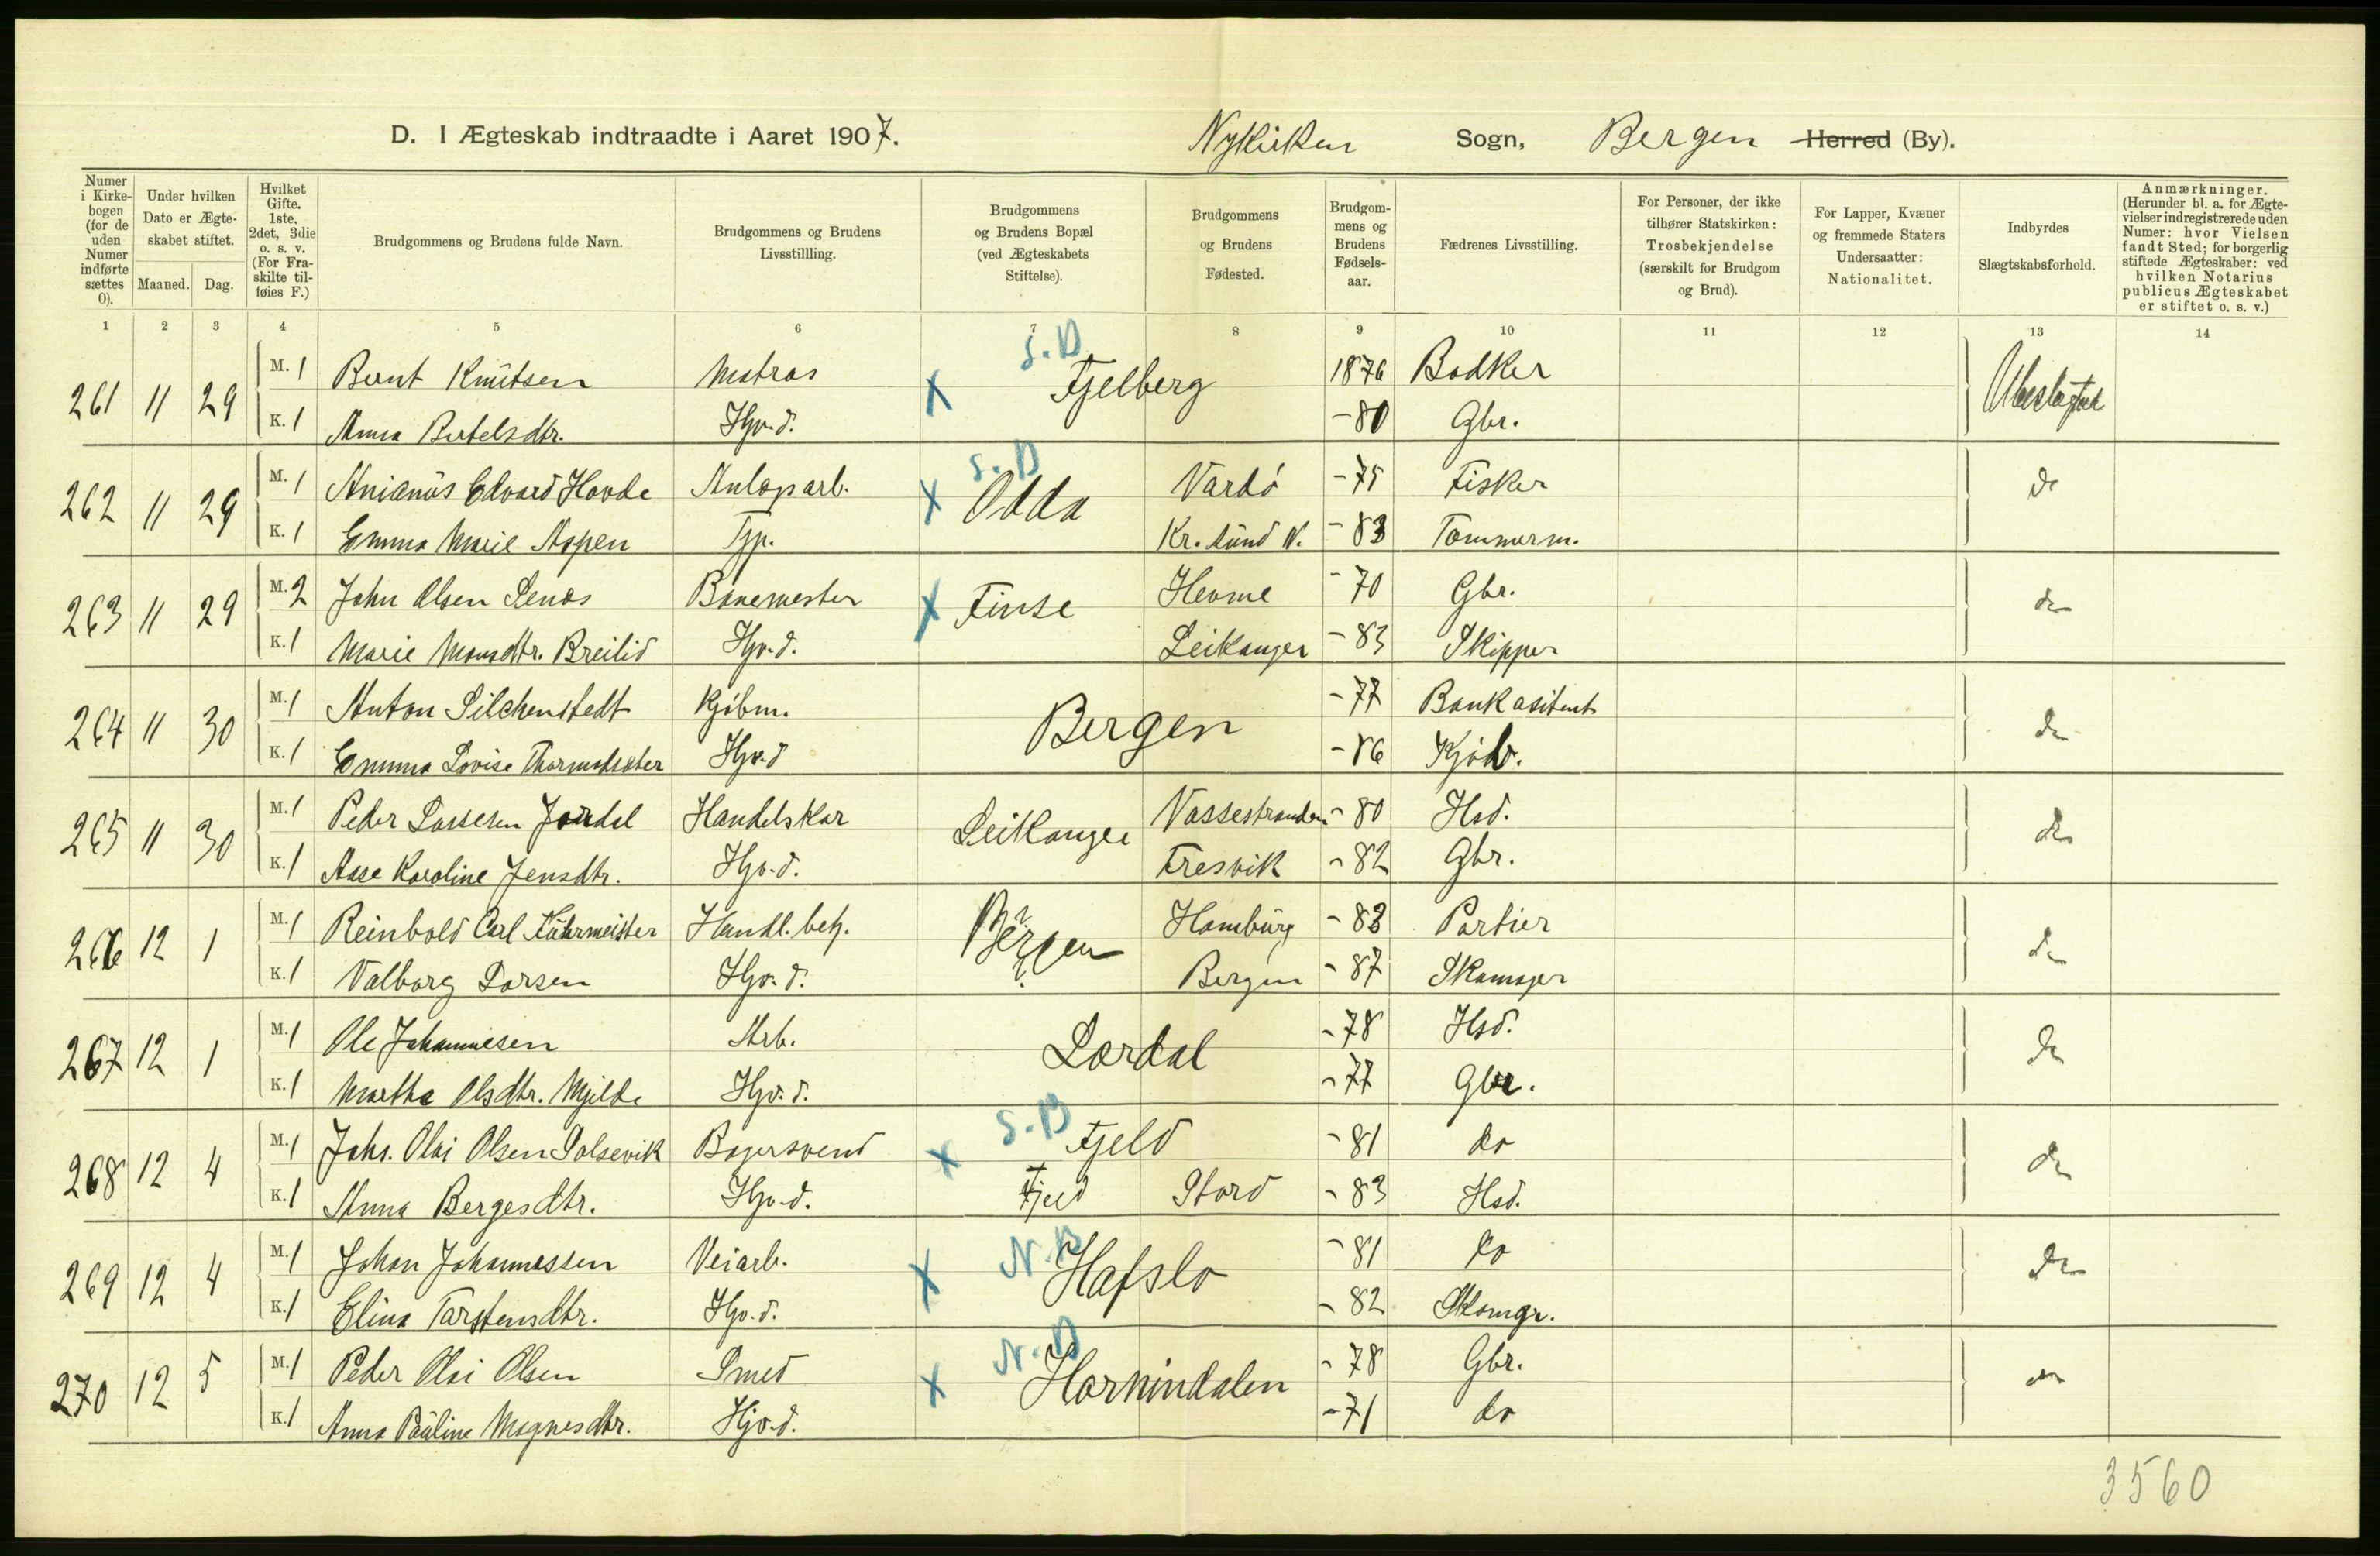 D. I Ægteskab indtraadte i Aaret 1907. Nykirken Sogn, Bergen Herred (By).
Numer i Kirkebogen (for de uden Numer indførte sættes 0).
Under hvilken Dato er Ægteskabet stiftet.
Maaned. Dag.
Hvilket Gifte. 1ste, 2det, 3die o. s. v. (For Fraskilte tilføies F.)
Brudgommens og Brudens fulde Navn.
Brudgommens og Brudens Livsstillling.
Brudgommens og Brudens Bopæl (ved Ægteskabets Stiftelse).
Brudgommens og Brudens Fødested.
Brudgommens og Brudens Fødselsaar.
Fædrenes Livsstilling.
For Personer, der ikke tilhører Statskirken: Trosbekjendelse (særskilt for Brudgom og Brud).
For Lapper, Kvæner og fremmede Staters Undersaatter: Nationalitet.
Indbyrdes Slægtskabsforhold.
Anmærkninger. (Herunder bl. a. for Ægtevielser indregistrerede uden Numer: hvor Vielsen fandt Sted; for borgerlig stiftede Ægteskaber: ved hvilken Notarius publicus Ægteskabet er stiftet o. s. v.)
1 2 3 4 5 6 7 8 9 10 11 12 13 14
261 11 29 M. 1 Bernt Knutsen Matros X S.B Fjelberg 1876 Bødker Ubeslægtet
K. 1 Anna Bertelsdtr. Hjv.d. -80 Gbr.
262 11 29 M. 1 Anianus Edvard Hovde Anlægsarb. X S.B Odda Vardö -75 Fisker do
K. 1 Emma Marie Aspen Tjp. Kr.sund N. -83 Tømmerm.
263 11 29 M. 2 John Olsen Lenæs Banemester X Finse Hevne -70 Gbr. do
K. 1 Marie Monsdtr. Breilid Hjv.d. Leikanger -83 Skipper
264 11 30 M. 1 Anton Silchenstedt Kjöbm. Bergen -77 Bankasitent do
K. 1 Emma Lovise Thormodsæter Hjv.d -86 Kjöb.
265 11 30 M. 1 Peder Lassesen Jordal Handelskar Leikanger Vossestranden -80 Hsd. do
K. 1 Aase Karoline Jensdtr. Hjv.d. Fresvik -82 Gbr.
266 12 1 M. 1 Reinhold Carl Führmeister Handl.betj. Bergen Hamburg -83 Portier do
K. 1 Valborg Larsen Hjv.d. Bergen -87 Skomager
267 12 1 M. 1 Ole Johannesen Arb. Lærdal -78 Hsd. do
K. 1 Martha Olsdtr. Mjelde Hjv.d. -77 Gbr.
268 12 4 M. 1 Johs. Olai Olsen Solsevik Bagersvend X S.B Fjeld -81 do do
K. 1 Anna Bergesdtr. Hjv.d. Fjeld Stord -83 Hsd.
269 12 4 M. 1 Johan Johannessen Veiarb. X N.B Hafslo -81 do do
K. 1 Elina Tarstensdtr. Hjv.d. -82 Skomgr.
270 12 5 M. 1 Peder Olai Olsen Smed X N.B Hornindalen -78 Gbr. do
K. 1 Anna Pauline Magnesdtr. Hjv.d. -71 do
3560